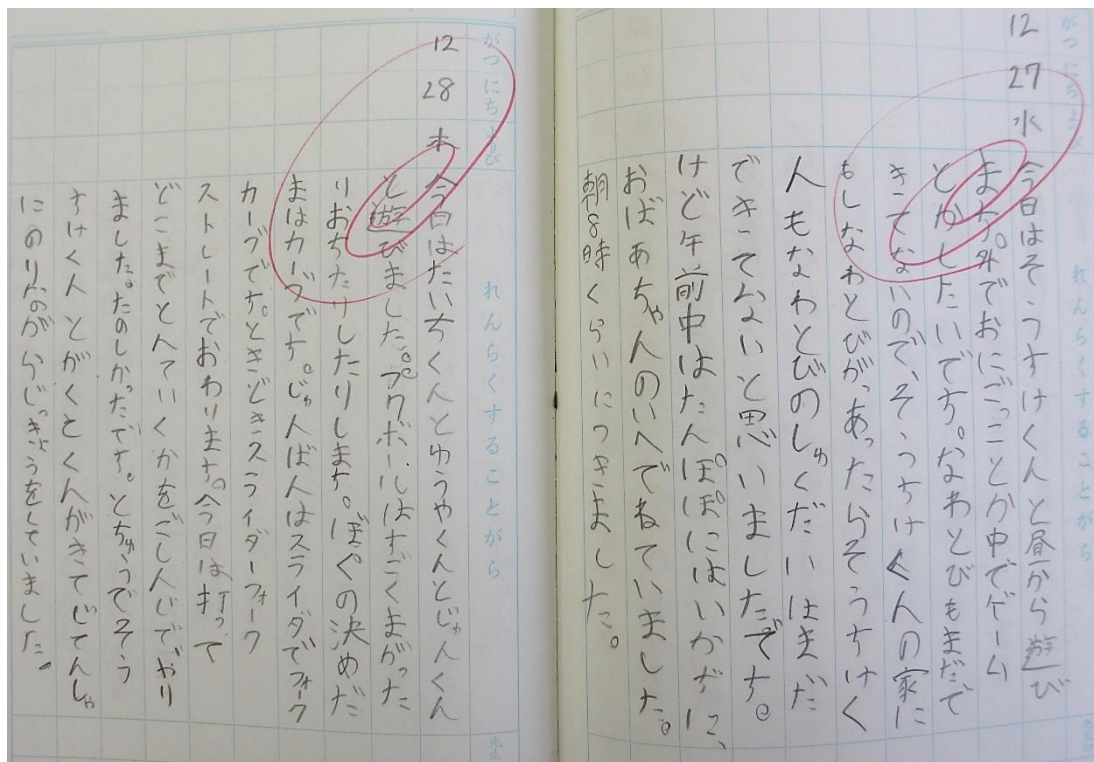 がつ にち ようび
れんらくすることがら
12 27 水
今日はそうすけくんと昼から遊び
ます。外でおにごっことか中でゲーム
とかしたいです。なわとびもまだで
きてないので、そうすけくんの家に
もしなわとびがあったらそうすけく
人もなわとびのしゅくだいはまだ
できてないと思いましたです。
けど午前中はたんぽぽにはいかずに、
おばあちゃんのいへでねていました。
朝8時くらいにつきました。
がつ にち ようび
れんらくすることがら
12 28 木
今日はたいちくんとゆうやくんとじゅんくん
と遊びました。プクボールはすごくまがった
りおちたりしたりします。ぼくの決めだ
まはカーブです。じゅんばんはスライダでフォーク
カーブです。ときどきスライダーフォーク
ストレートでおわります。今日は打って
どこまでとんでいくかをごしんじでやり
ました。たのしかったです。とちゅうでそう
すけくんとがくとくんがきてじてんしゃ
にのりながらじっきょうをしていました。